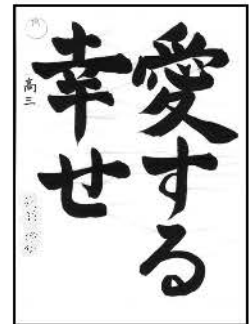 愛する
幸せ
高三